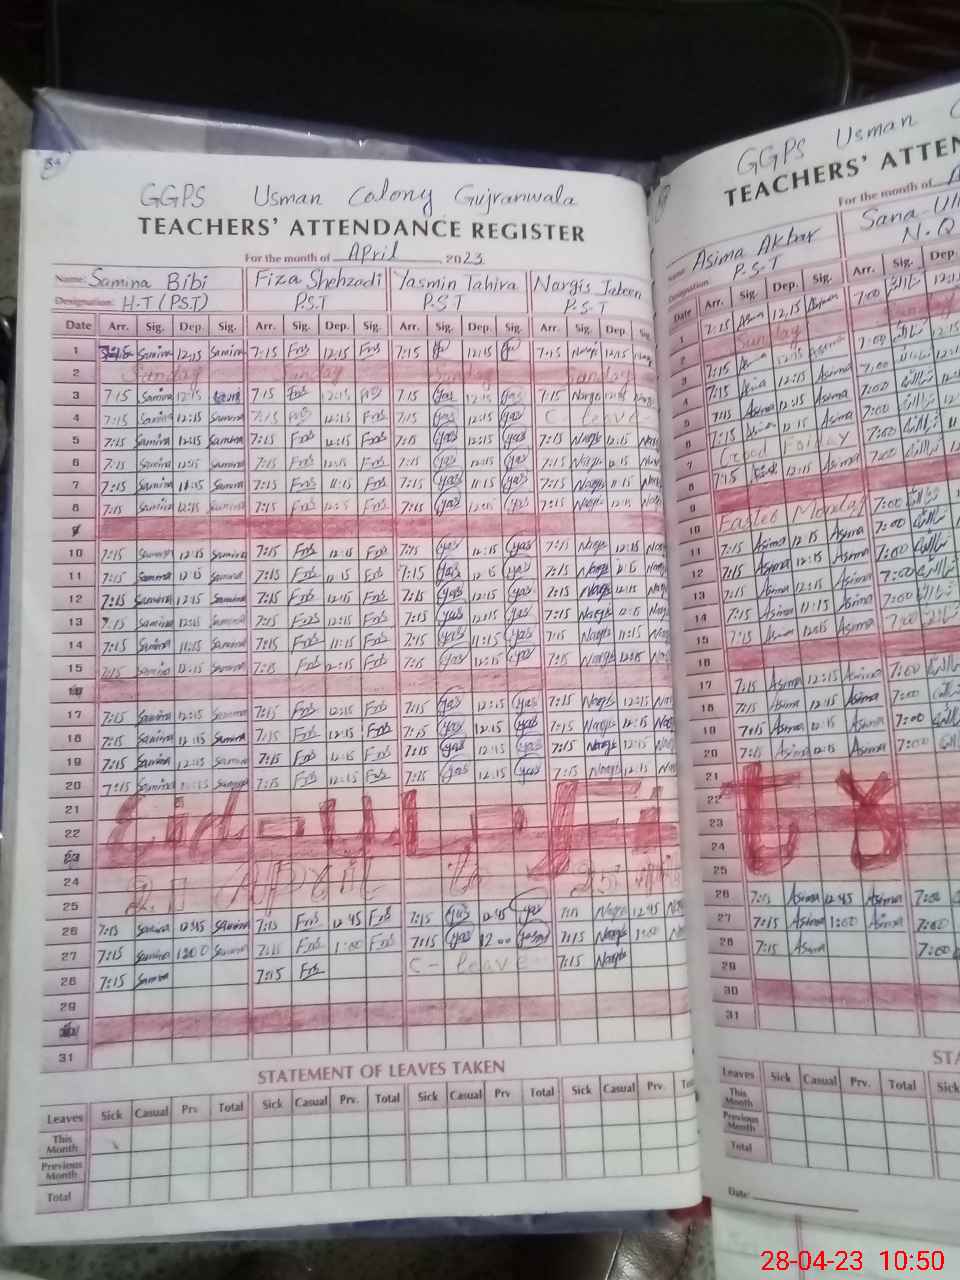 GGPS Usman Colony Gujranwala
TEACHERS' ATTENDANCE REGISTER
For the month of April 2023
Name: Samina Bibi Fiza Shehzadi Yasmin Tahira Nargis Jabeen
Designation: H-T (P.S.T) P.S.T P.S.T P.S.T
Date Arr. Sig. Dep. Sig. Arr. Sig. Dep. Sig. Arr. Sig. Dep. Sig. Arr. Sig. Dep.
1 Samina 12:15 Samina 7:15 Frs 12:15 Frs 7:15 12:15 7:15 Nargis 12:15
2 Sunday Sunday Sunday Sunday
3 7:15 Samina 12:15 7:15 Frs 12:15 7:15 Yas 12:15 Yas 7:15 Nargis 12:15
4 7:15 Samina 12:15 Samina 7:15 12:15 Frs 7:15 Yas 12:15 Yas C-leave
5 7:15 Samina 12:15 Samina 7:15 Frs 12:15 Frs 7:15 Yas 12:15 Yas 7:15 Nargis 12:15
6 7:15 Samina 12:15 Samina 7:15 Frs 12:15 Frs 7:15 Yas 12:15 Yas 7:15 Nargis 12:15
7 7:15 Samina 11:15 Samina 7:15 Frs 11:15 Frs 7:15 Yas 11:15 Yas 7:15 Nargis 11:15
8 7:15 Samina 12:15 Samina 7:15 Frs 12:15 Frs 7:15 Yas 12:15 Yas 7:15 Nargis 12:15
9
10 7:15 Samina 12:15 Samina 7:15 Frs 12:15 Frs 7:15 Yas 12:15 Yas 7:15 Nargis 12:15
11 7:15 Samina 12:15 Samina 7:15 Frs 12:15 Frs 7:15 Yas 12:15 Yas 7:15 Nargis 12:15
12 7:15 Samina 12:15 Samina 7:15 Frs 12:15 Frs 7:15 Yas 12:15 Yas 7:15 Nargis 12:15
13 7:15 Samina 12:15 Samina 7:15 Frs 12:15 Frs 7:15 Yas 12:15 Yas 7:15 Nargis 12:15
14 7:15 Samina 11:15 Samina 7:15 Frs 11:15 Frs 7:15 Yas 11:15 Yas 7:15 Nargis 11:15
15 7:15 Samina 12:15 Samina 7:15 Frs 12:15 Frs 7:15 Yas 12:15 Yas 7:15 Nargis 12:15
16
17 7:15 Samina 12:15 Samina 7:15 Frs 12:15 Frs 7:15 Yas 12:15 Yas 7:15 Nargis 12:15
18 7:15 Samina 12:15 Samina 7:15 Frs 12:15 Frs 7:15 Yas 12:15 Yas 7:15 Nargis 12:15
19 7:15 Samina 12:15 Samina 7:15 Frs 12:15 Frs 7:15 Yas 12:45 Yas 7:15 Nargis 12:15
20 7:15 Samina Samina 7:15 Frs 12:15 Frs 7:15 Yas 12:15 Yas 7:15 Nargis 12:15
21
22 Eid-UL-
23
24 21 April to 25
25
26 7:15 Samina 12:45 Samina 7:15 Frs 12:45 Frs 7:15 Yas 12:45 Yas 7:15 Nargis 12:45
27 7:15 Samina 1:00 Samina 7:15 Frs 1:00 Frs 7:15 Yas Nargis 1:00
28 7:15 Samina 7:15 Frs C-leave 7:15 Nargis
29
31
STATEMENT OF LEAVES TAKEN
Leaves Sick Casual Prv. Total Sick Casual Prv. Total Sick Casual Prv. Total Sick Casual Prv.
This Month
Previous Month
Total
GGPS Usman
TEACHERS'
For the month of
Asima Akbar Sana
Designation: P.S.T
Date Arr. Sig. Dep. Sig. Arr. Sig. Dep.
1 7:15 12:15 Asima 7:00
2 Sunday
3 7:15 12:15 Asima 7:00
4 7:15 Asima 12:15 Asima 7:00
5 7:15 Asima 12:15 Asima 7:00
6 7:15 12:15 Asima 7:00
7 Good Friday 7:00
8 7:15 12:15 Asima 7:00
9
10 Easter Monday 7:00
11 7:15 Asima 12:15 Asima 7:00
12 7:15 Asima 12:15 Asima 7:00
13 7:15 Asima 12:15 Asima 7:00
14 7:15 Asima 11:15 Asima 7:00
15 7:15 Asima 12:15 Asima 7:00
16
17 7:15 Asima 12:15 Asima 7:00
18 7:15 Asima 12:15 Asima 7:00
19 7:15 Asima 12:15 Asima 7:00
20 7:15 Asima 12:15 Asima 7:00
21
22
23
24
25
26 7:15 Asima 12:45 Asima 7:00
27 7:15 Asima 1:00 Asima 7:00
28 7:15 Asima 7:00
29
30
31
Leaves Sick Casual Prv. Total Sick
This Month
Previous Month
Total
Date:
28-04-23 10:50